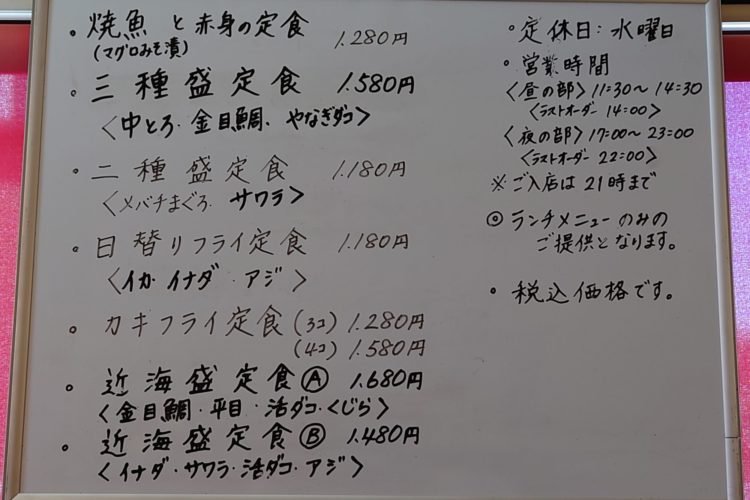 ・焼魚と赤身の定食 1.280円
(マグロみそ漬)
・三種盛定食 1.580円
〈中とろ・金目鯛、やなぎダコ〉
・二種盛定食 1.180円
〈メバチまぐろ、サワラ〉
・日替りフライ定食 1.180円
〈イカ・イナダ・アジ〉
・カキフライ定食(3コ) 1.280円
(4コ) 1.580円
・近海盛定食Ⓐ 1.680円
〈金目鯛・平目・活ダコ・くじら〉
・近海盛定食Ⓑ 1.480円
〈イナダ・サワラ・活ダコ・アジ〉
・定休日:水曜日
・営業時間
〈昼の部〉11:30〜14:30
〈ラストオーダー 14:00〉
〈夜の部〉17:00〜23:00
〈ラストオーダー 22:00〉
※ご入店は21時まで
◎ランチメニューのみの
ご提供となります。
・税込価格です。